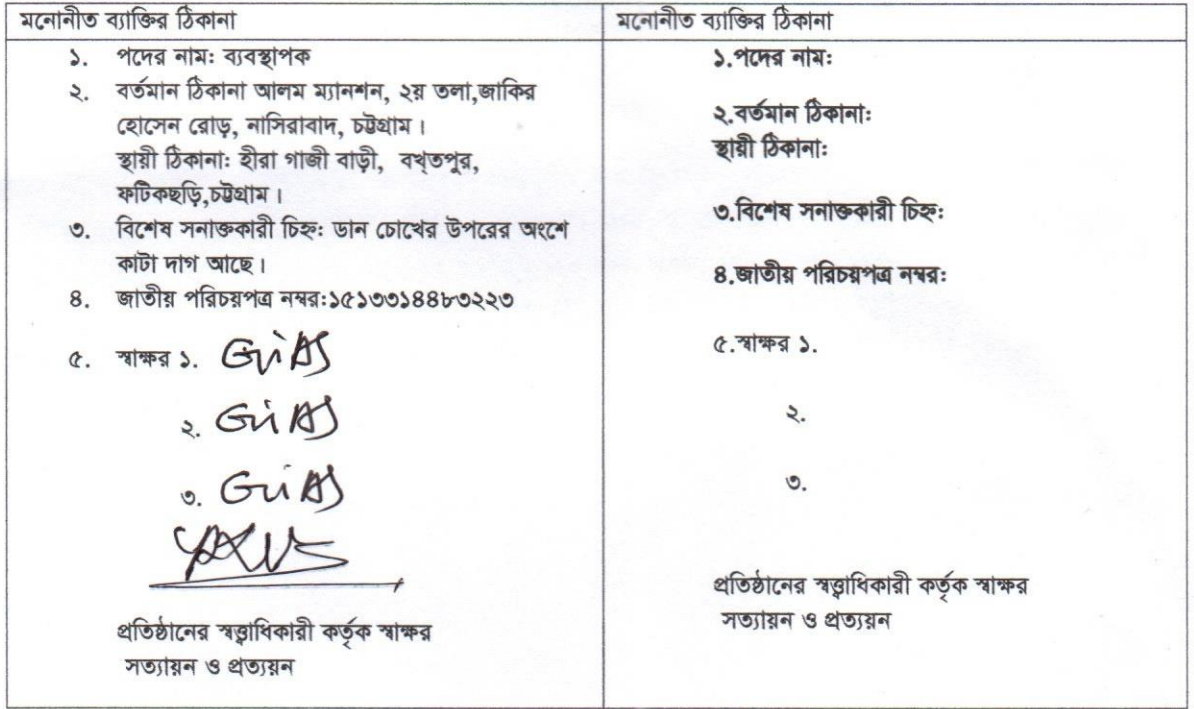 মনোনীত ব্যাক্তির ঠিকানা
১. পদের নাম: ব্যবস্থাপক
২. বর্তমান ঠিকানা আলম ম্যানশন, ২য় তলা,জাকির
হোসেন রোড়, নাসিরাবাদ, চট্টগ্রাম।
স্থায়ী ঠিকানা: হীরা গাজী বাড়ী, বখ্তপুর,
ফটিকছড়ি,চট্টগ্রাম।
৩. বিশেষ সনাক্তকারী চিহ্ন: ডান চোখের উপরের অংশে
কাটা দাগ আছে।
৪. জাতীয় পরিচয়পত্র নম্বর:১৫১৩৩১৪৪৮৩২২৩
৫. স্বাক্ষর ১. GiAS
২. GiAS
৩. GiAS
প্রতিষ্ঠানের স্বত্ত্বাধিকারী কর্তৃক স্বাক্ষর
সত্যায়ন ও প্রত্যয়ন
মনোনীত ব্যাক্তির ঠিকানা
১.পদের নাম:
২.বর্তমান ঠিকানা:
স্থায়ী ঠিকানা:
৩.বিশেষ সনাক্তকারী চিহ্ন:
৪.জাতীয় পরিচয়পত্র নম্বর:
৫.স্বাক্ষর ১.
২.
৩.
প্রতিষ্ঠানের স্বত্ত্বাধিকারী কর্তৃক স্বাক্ষর
সত্যায়ন ও প্রত্যয়ন